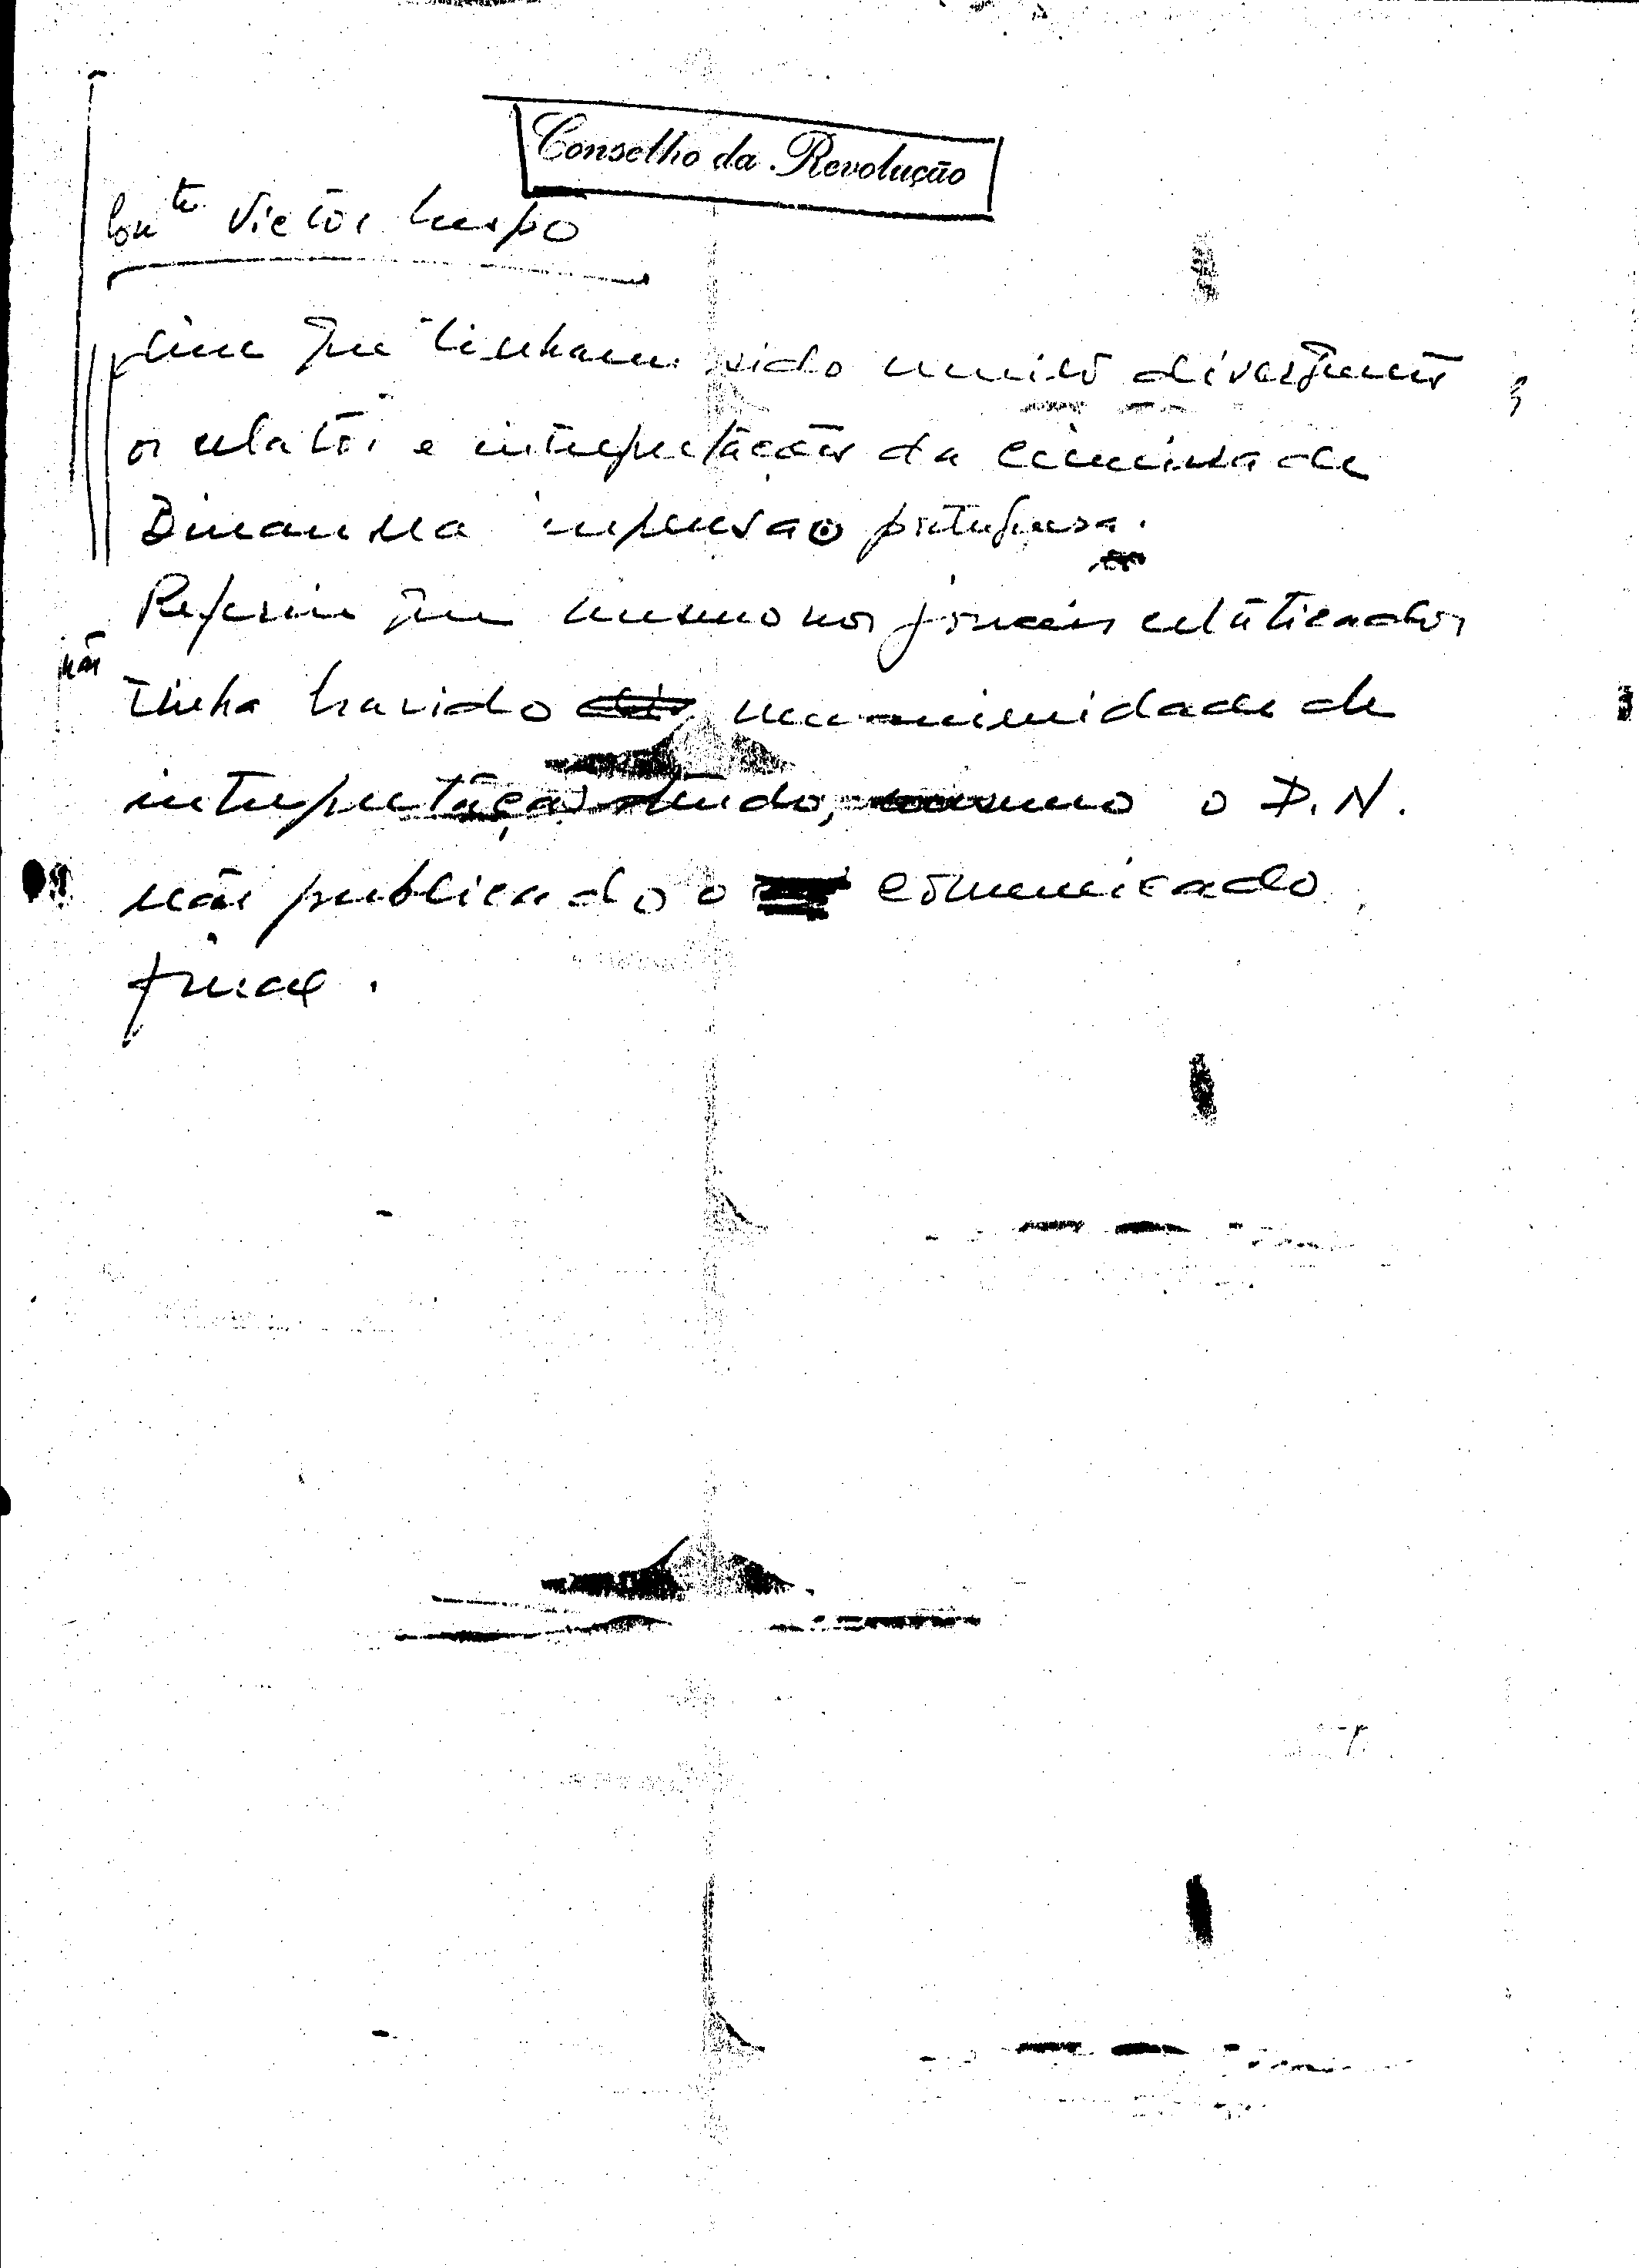 Conselho da Revolução
Comte Victor Crespo
que tinham sido muito divergentes
os relatos e interpretações da cimeira de
na imprensa portuguesa.
Referiu que mesmo nos jornais estatizados
não
tinha havido unanimidade de
interpretação tendo, mesmo o D.N.
não publicado o comunicado
final.